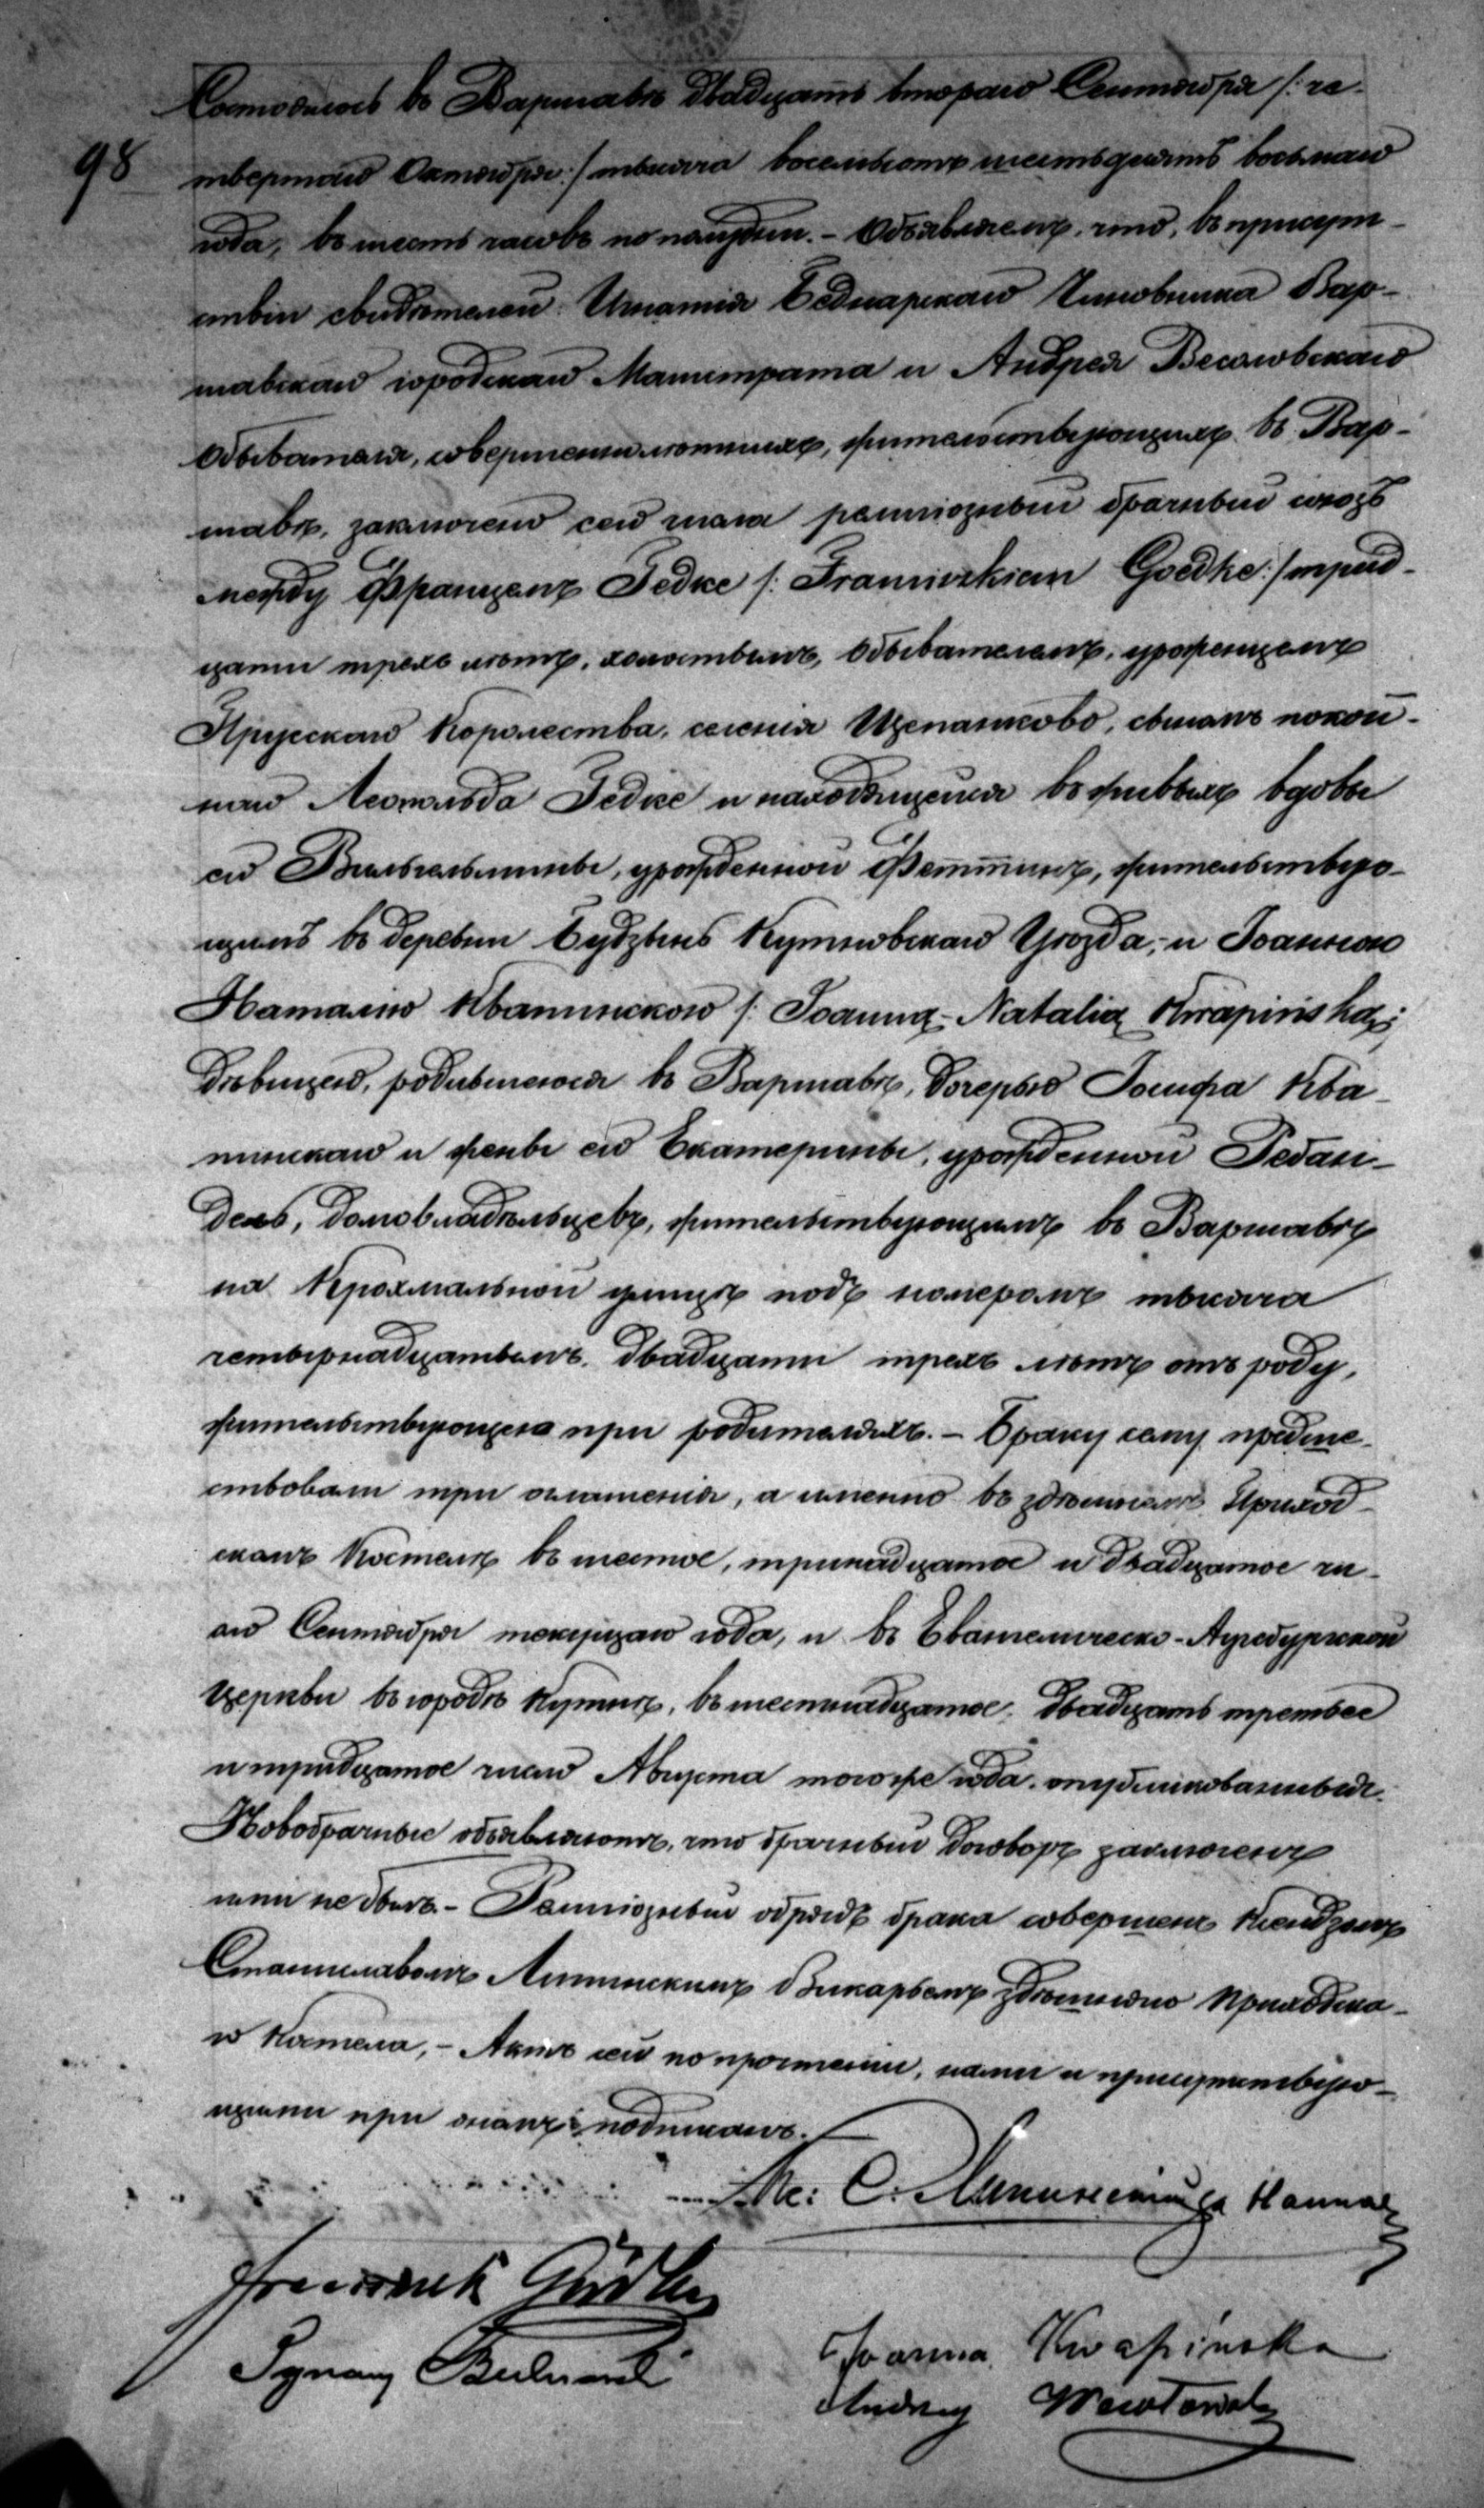 Состоялось въ Варшавѣ двадцать втораго Сентября /: че-
98
твертаго Октября :/ тысяча восемьсотъ шестьдесятъ восьмаго
года, въ шесть часовъ по полудни. – Объявляемъ, что, въ присут-
ствіи свидѣтелей Игнатія Беднарскаго Чиновника Вар-
шавскаго городскаго Магистрата и Андрея Весоловскаго
Обывателя, совершеннолѣтнихъ, жительствующихъ въ Вар-
шавѣ, заключенъ сего числа религіозный брачный союзъ
между Францемъ Гедке /: Franciszkiem Goedke :/ трид-
цати трехъ лѣтъ, холостымъ, Обывателемъ, урожденцемъ
Прусскаго Королества, селенія Щепанково, сыномъ покой-
наго Леопольда Гедке и находящейся въ живыхъ вдовы
его Вильгельмины, урожденной Феттинъ, жительствую-
щимъ въ деревни Будзынь Кутновскаго Уѣзда; и Іоанною
Наталію Квапинскою /: Joanną-Natalią Kwapińską :/
Дѣвицею, родившеюся въ Варшавѣ, дочерью Іосифа Ква-
пинскаго и жены его Екатерины, урожденной Ребан-
дель, домовладѣльцевъ, жительствующимъ въ Варшавѣ
на Крохмальной улицѣ подъ номеромъ тысяча
четырнадцатымъ, двадцати трехъ лѣтъ отъ роду,
жительствующею при родителяхъ. – Браку сему предше-
ствовали три оглашенія, а именно въ здѣшнемъ Приход-
скомъ Костелѣ въ шестое, тринадцатое и двадцатое чи-
сло Сентября текущаго года, и въ Евангелическо-Аугсбургской
Церкви въ городѣ Кутнѣ, въ шестнадцатое, двадцать третьее
и тридцатое число Августа тогоже года опубликованныя.
Новобрачные объявляютъ, что брачный договоръ заключенъ
ими не былъ. – Религіозный обрядъ брака совершенъ Ксендзомъ
Станиславомъ Липинскимъ Викарьемъ здѣшняго Приходска-
го Костела, – Актъ сей по прочтеніи, нами и присутствую-
щими при ономъ подписанъ.
Кс: С. Липинскій
Franciszek Gödke
Joanna Kwapińska
Ignacy Bednarski
Andrzej Wesołowski